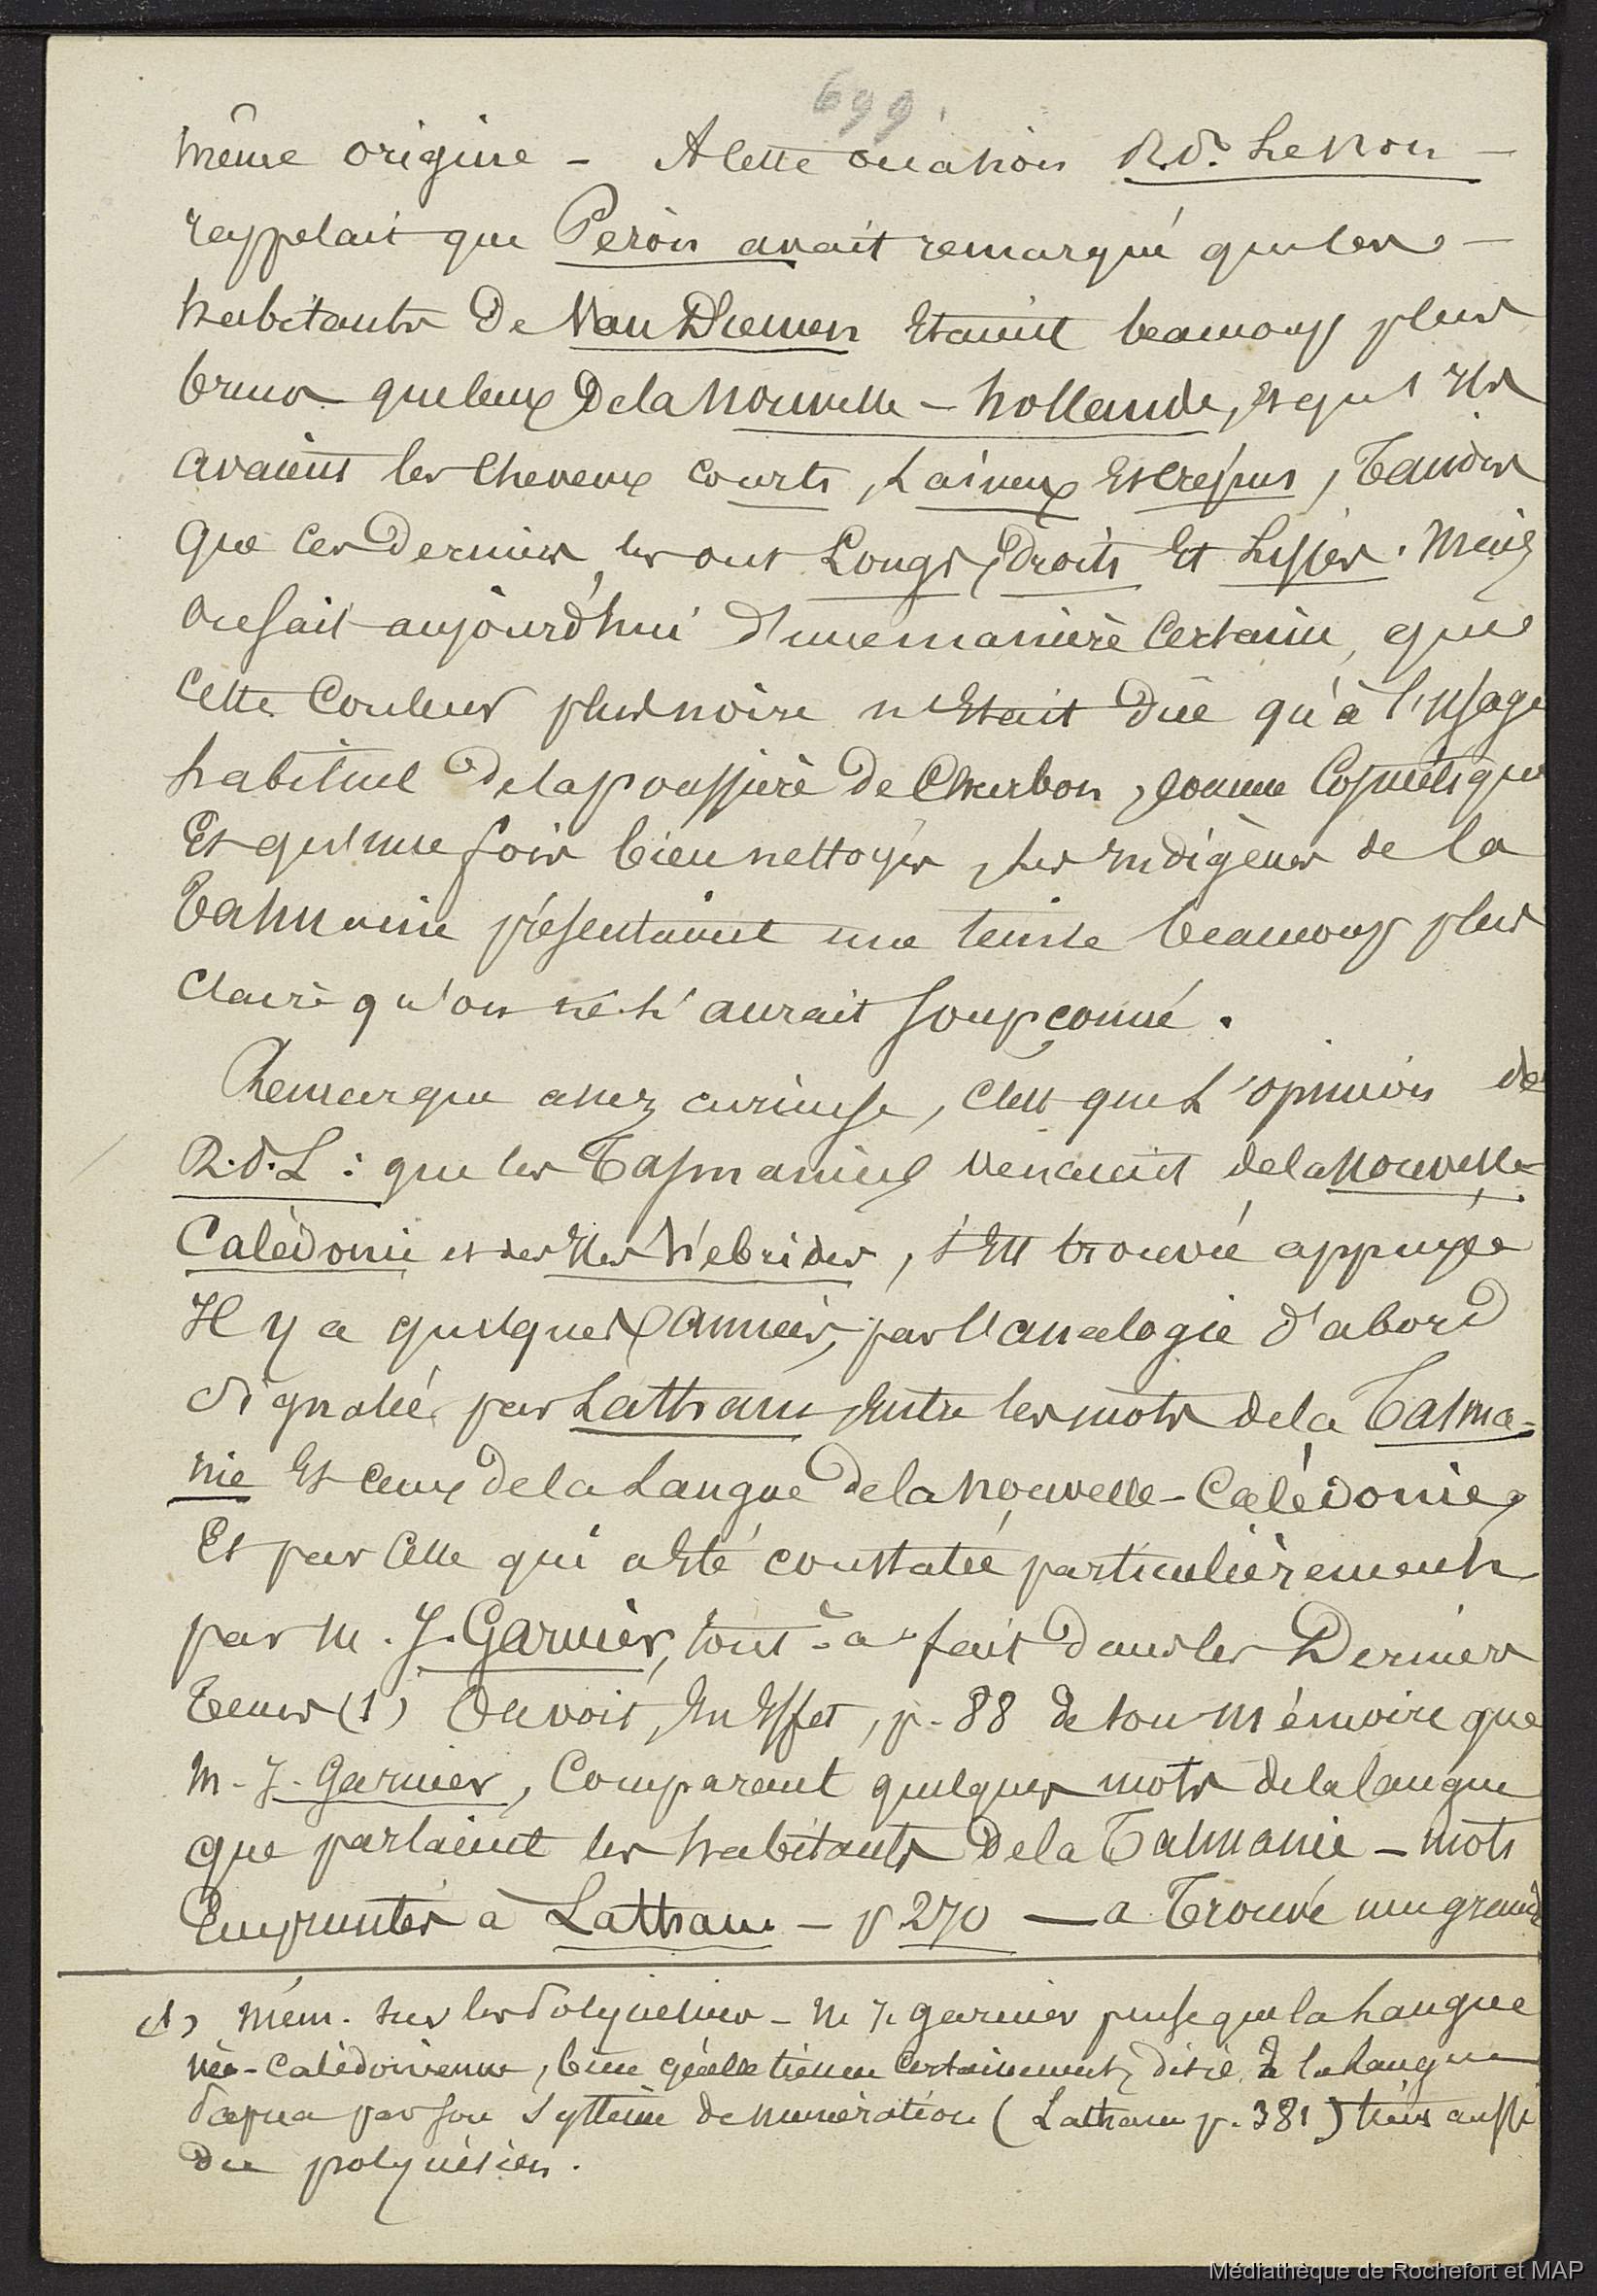 699
même origine - A cette occasion R.P. Lesson -
rappelait que Peròn avait remarqué que les -
habitants de Van Diemen étaient beaucoup plus
bruns que ceux de la Nouvelle - hollande, et qu'ils
avaient les cheveux courts, Laineux et crépus, Tandis
que ces derniers les ont Longs, Droits et Lisses. Mais
on sait aujourd'hui d'une manière certaine, que
cette Couleur plus noire n'était dûe qu'à l'usage
habituel de la poussière de Charbon, comme Cosmétique
Et qu'une fois bien nettoyés, les indigènes de la
Tasmanie présentaient une teinte beaucoup plus
claire qu'on ne l'aurait soupçonné.
Remarque assez curieuse, c'est que L'opinion de
R.P.L : que les Tasmaniens venaient de la Nouvelle-
Calédonie et des Iles Hébrides, s'est trouvée appuyée
Il y a quelques années, par l'analogie d'abord
Signalée par Latham, entre les mots de la Tasma-
nie Et ceux de la Langue de la Nouvelle-Calédonie,
Et par Celle qui a été constatée particulièrement
par M. J. Garnier, tout-à-fait dans les Derniers
Temps (1) On voit, En Effet, p. 88 de son Mémoire que
M. J. Garnier, Comparant quelques mots de la langue
que parlaient les habitants de la Tasmanie - mots
Empruntés à Latham - p 270 - a Trouvé une grande
(1) Mém. sur les Polynésiens - M. J. Garnier pense que la Langue
néo-Calédonienne, bien qu'elle tienne certainement, dit-il, à la Langue
Papua par son système de numération (Latham p. 381) tient aussi
du polynésien.
Médiathèque de Rochefort et MAP